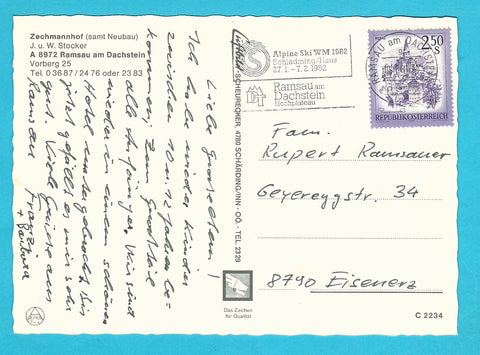 Zechmannhof (samt Neubau)
J. u. W. Stocker
A 8972 Ramsau am Dachstein
Vorberg 25
Tel. 0 36 87 / 24 76 oder 23 83
Liebe Grosseltern!
Ich habe wieder Kinder
zwischen 10 u. 12 Jahren be-
kommen. Zum Großteil
alle Anfänger. Wir sind
wieder in einem schönen
Hotel untergebracht. Bis
jetzt gefällt es mir sehr
gut. Viele Grüsse aus
Ramsau
+ Barbara
SCHEUREGKER, 4780 SCHÄRDING/INN - OÖ. - TEL. 2329
Alpine Ski WM 1982
Schladming/Haus
27. 1. - 7. 2. 1982
Ramsau am
Dachstein
Hochplateau
RAMSAU am DACHSTEIN
2.50
S
REPUBLIK ÖSTERREICH
Fam.
Rupert Ramsauer
Geyereggstr. 34
8790 Eisenerz
Das Zeichen
für Qualität
C 2234